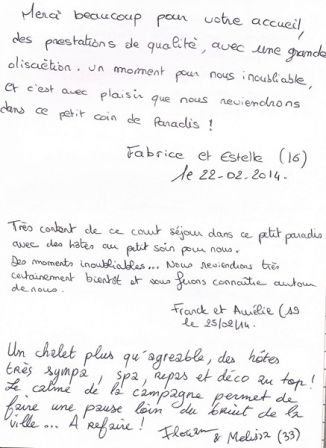 Merci beaucoup pour votre accueil,
des prestations de qualité, avec une grande
discrétion. un moment pour nous inoubliable,
et c'est avec plaisir que nous reviendrons
dans ce petit coin de Paradis !
Fabrice et Estelle (16)
le 22-02-2014.
Très content de ce court séjour dans ce petit paradis
avec des hôtes au petit soin pour nous.
Des moments inoubliables... Nous reviendrons très
certainement bientôt et vous ferons connaître autour
de nous.
Franck et Aurélie (19
le 25/02/14.
Un chalet plus qu'agreable, des hôtes
très sympa, spa, repas et déco au top!
Le calme de la campagne permet de
faire une pause loin du bruit de la
ville... A refaire !
Florian & Melissa (33)